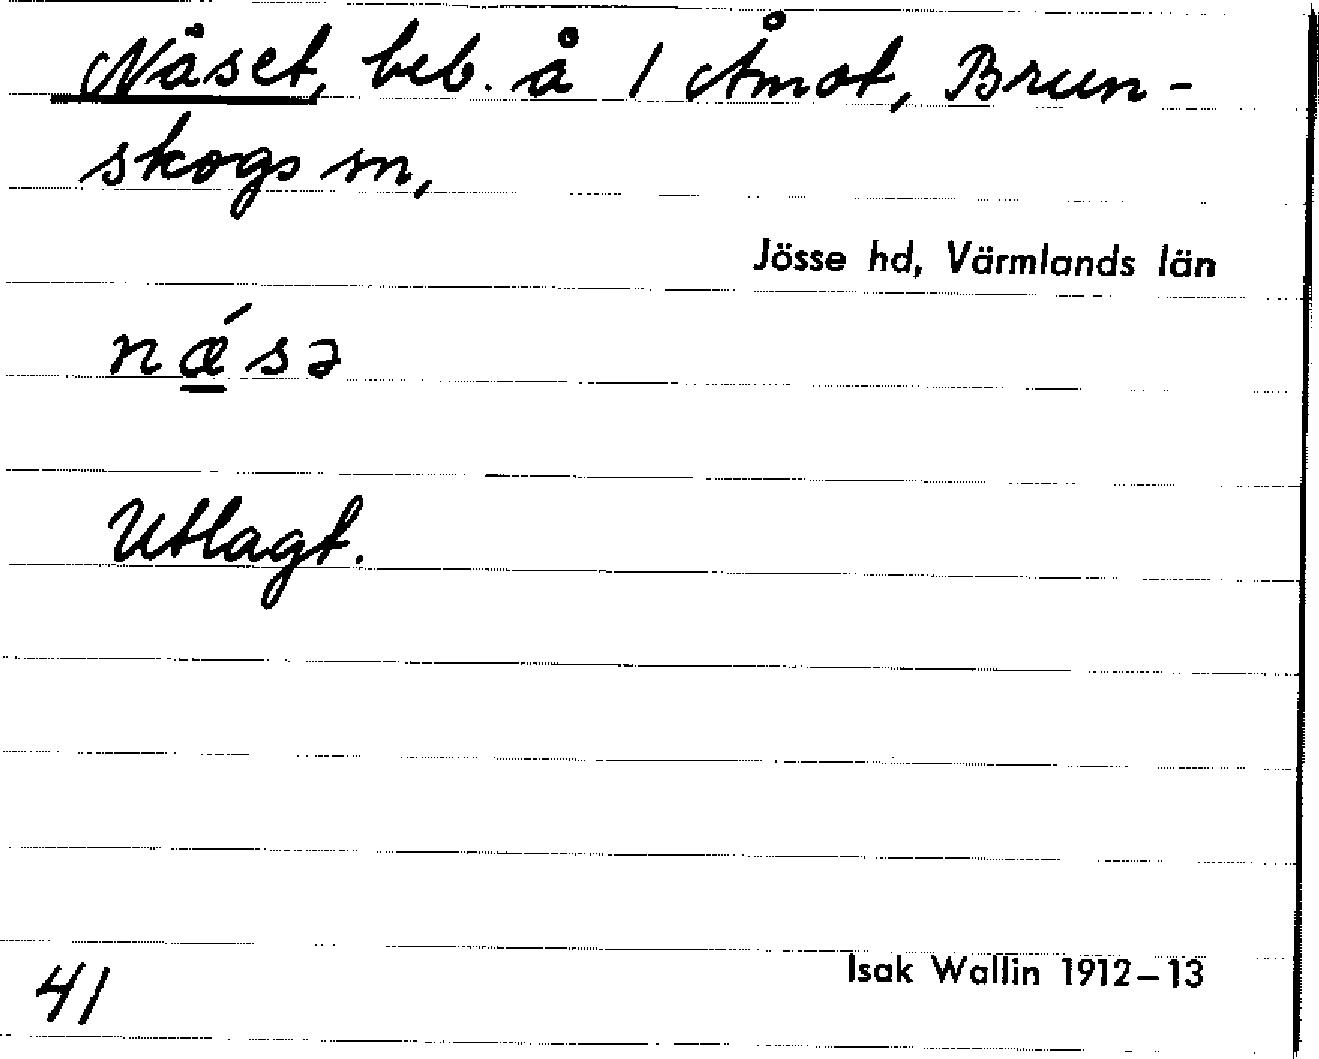 Näset, beb. å 1 Åmot, Brun-
skogs sn,
Jösse hd, Värmlands län
nǽ̲sə
Utlagt.
Isak Wallin 1912–13
41